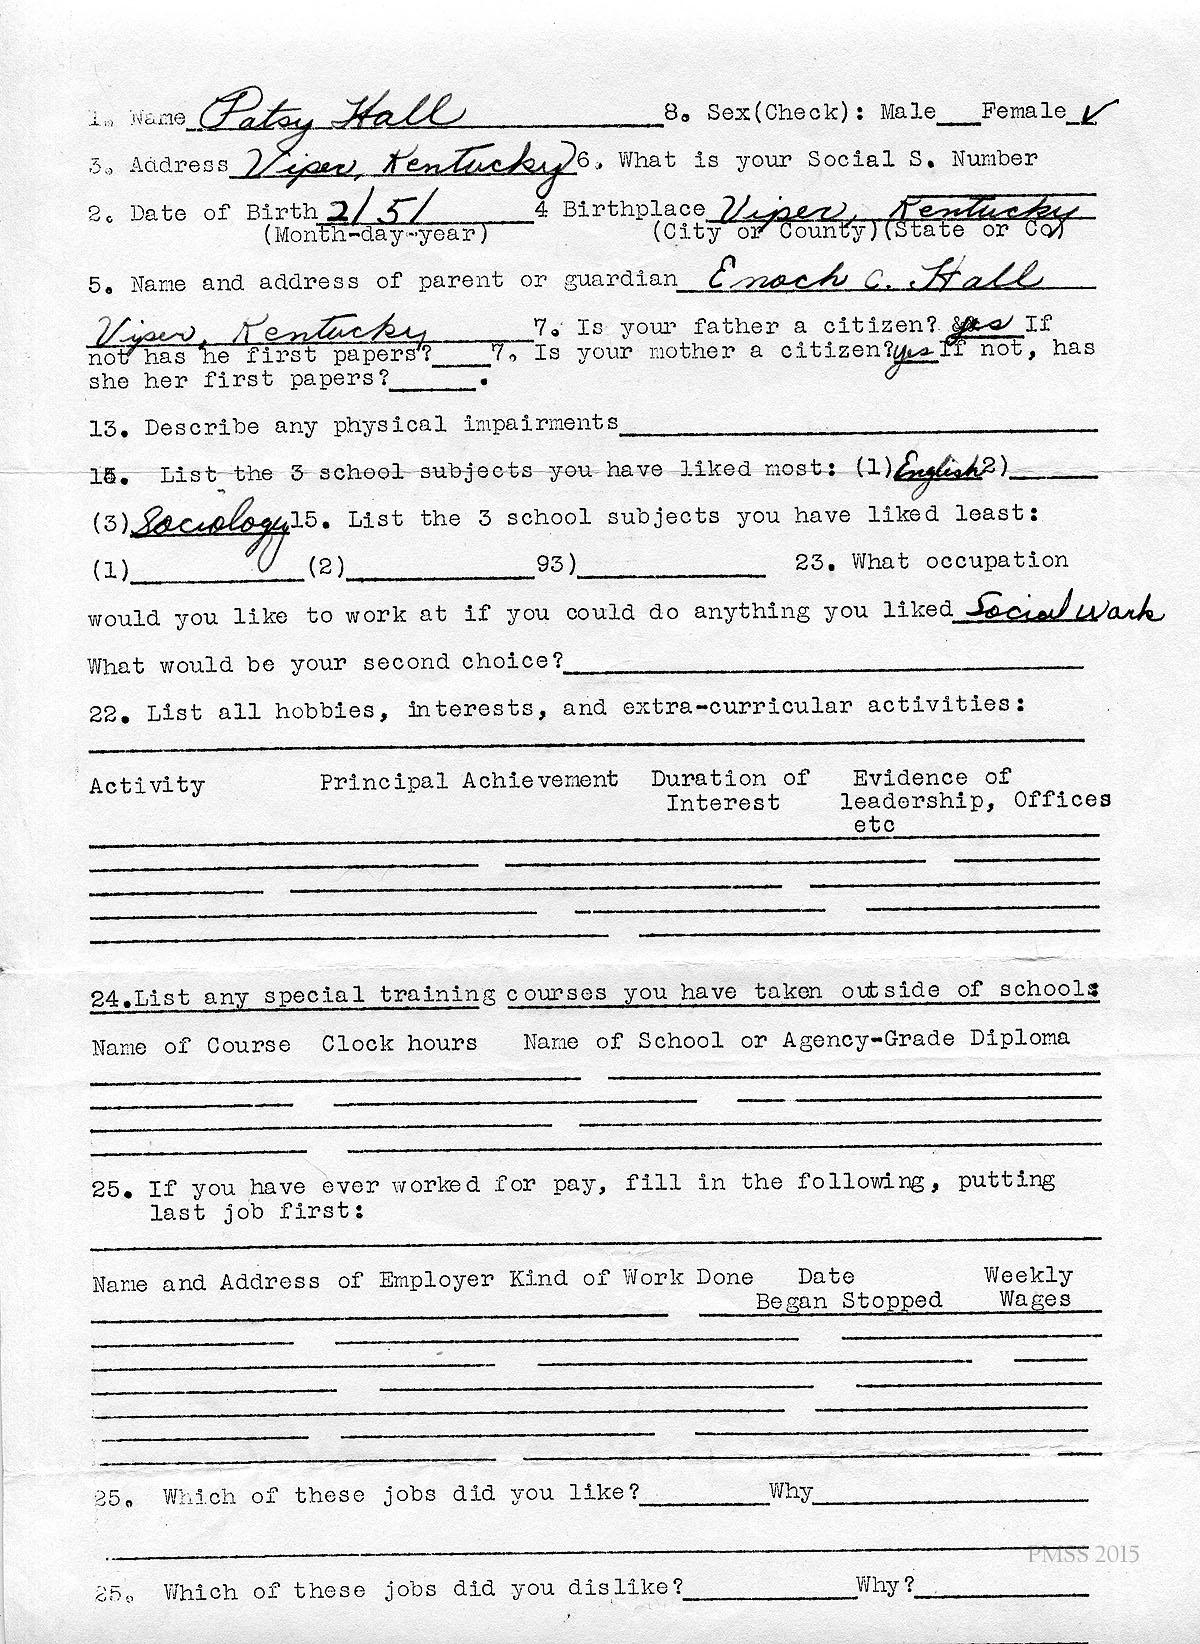 1. Name Patsy Hall 8. Sex(Check): Male___Female ✓
3. Address Viper, Kentucky 6. What is your Social S. Number
2. Date of Birth 2/5/ 4 Birthplace Viper, Kentucky
(Month-day-year) (City or County)(State or Co)
5. Name and address of parent or guardian Enoch C. Hall
Viper, Kentucky 7. Is your father a citizen? yes If
not has he first papers?____7. Is your mother a citizen?yes If not, has
she her first papers?______.
13. Describe any physical impairments____
15. List the 3 school subjects you have liked most: (1)English2)______
(3)Sociology15. List the 3 school subjects you have liked least:
(1)____________(2)_____________93)_____________ 23. What occupation
would you like to work at if you could do anything you liked Social Work
What would be your second choice?____
22. List all hobbies, interests, and extra-curricular activities:
Activity Principal Achievement Duration of Evidence of
Interest leadership, Offices
etc
24.List any special training courses you have taken outside of school:
Name of Course Clock hours Name of School or Agency-Grade Diploma
25. If you have ever worked for pay, fill in the following, putting
last job first:
Name and Address of Employer Kind of Work Done Date Weekly
Began Stopped Wages
25. Which of these jobs did you like?_________Why____
PMSS 2015
25. Which of these jobs did you dislike?____________Why?____